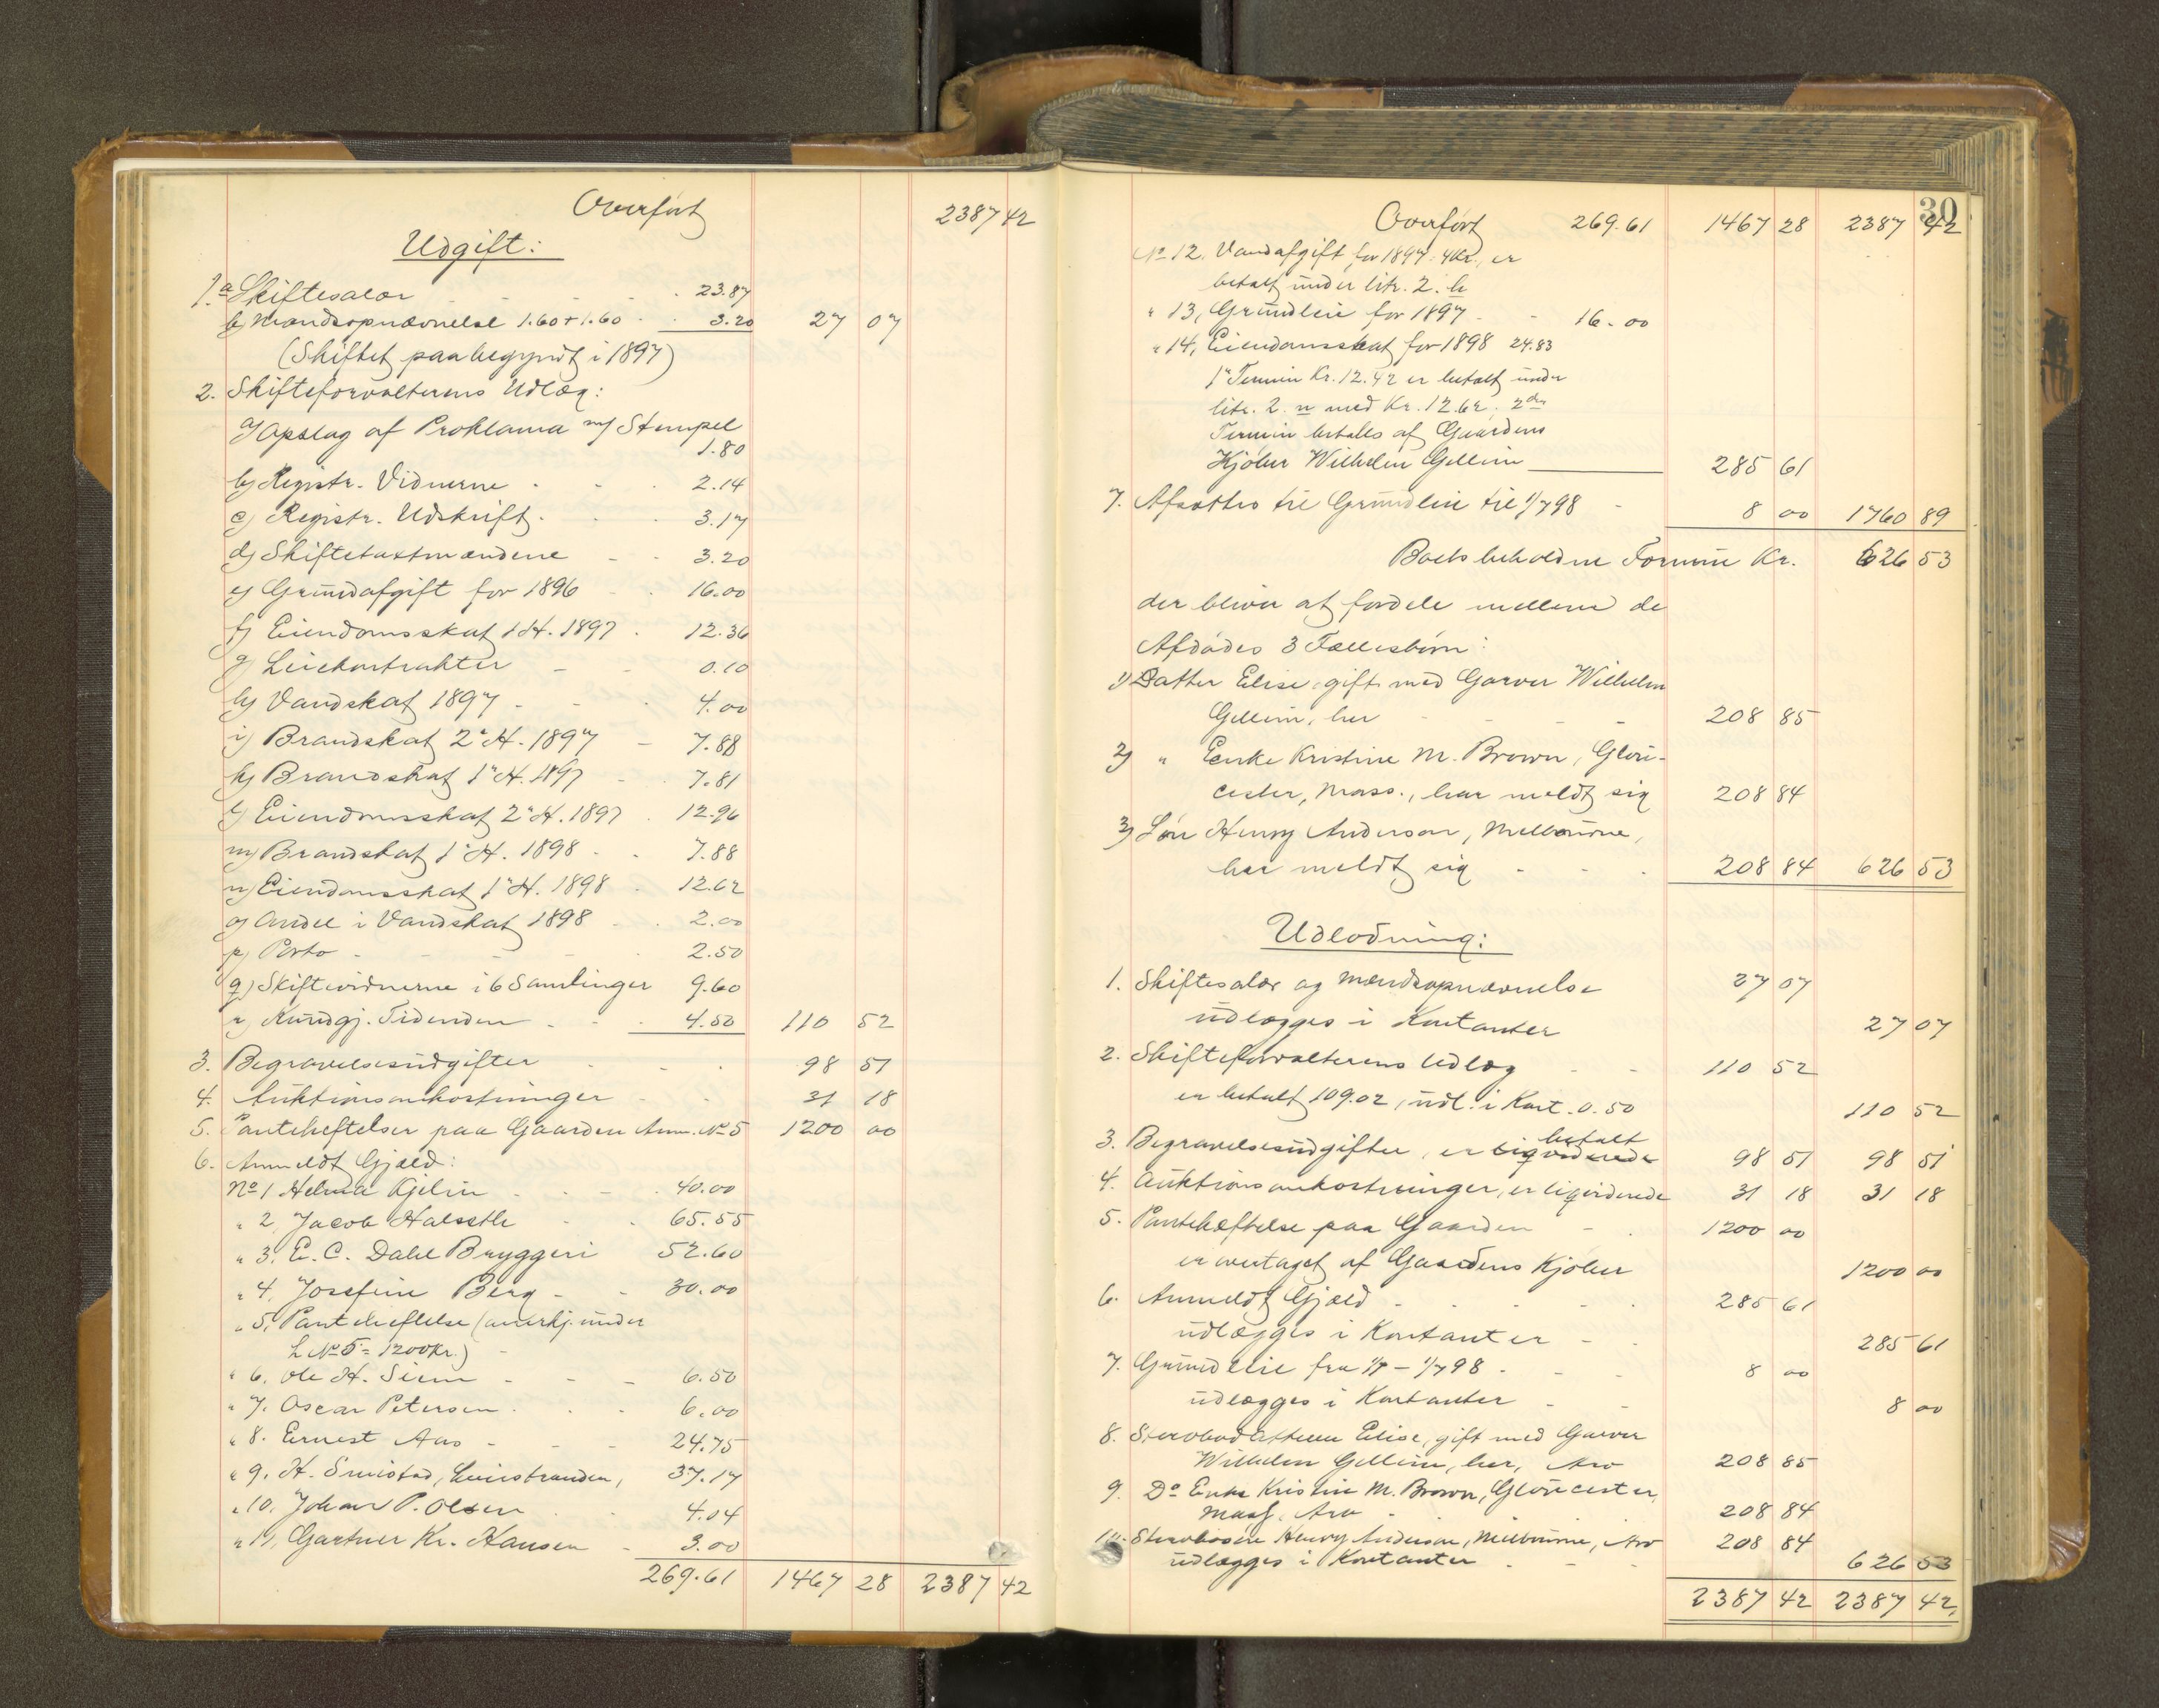 Overført 2387 42
Udgift:
1. a Skiftesalær 23.87
b) Mændsopnævnelse 1.60 + 1.60 3.20 27 07
(Skiftet paabegyndt i 1897)
2. Skifteforvalterens Udlæg:
a) Opslag af Proklama m/ Stempel
1.80
b) Registr. Vidnerne 2.14
c) Registr. Udskrift 3.17
d) Skiftetaxtmændene 3.20
e) Grundafgift for 1896 16.00
f) Eiendomsskat 1 H. 1897 12.36
g) Leiekontrakter 0.10
h) Vandskat 1897 4.00
i) Brandskat 2' H. 1897 7.88
k) Brandskat 1' H. 1897 7.81
l) Eiendomsskat 2' H. 1897 12.96
m) Brandskat 1' H. 1898 7.88
n) Eiendomsskat 1' H. 1898 12.62
o) Andel i Vandskat 1898 2.00
p) Porto 2.50
q) Skiftevidnerne i 6 Samlinger 9.60
r) Kundgj. Tidenden 4.50 110 52
3. Begravelsesudgifter 98 51
4. Auktionsomkostninger 31 18
5. Panteheftelser paa Gaarden Anm. No 5 1200 00
6. Anmeldt Gjæld:
No 1 Helma Kjelin 40.00
" 2, Jacob Halseth 65.55
" 3. E. C. Dahl Bryggeri 52.60
" 4. Josefine Berg 30.00
" 5. Panteheftelse (anerkj. under
L No 5 = 1200 Kr.)
" 6. Ole H. Siem 6.50
" 7. Oscar Petersen 6.00
" 8. Ernest Aas 24.75
" 9. H. Smistad, Leirstranden, 37.17
" 10. Johan P. Olsen 4.04
" 11, Gartner Kr. Hansen 3.00
269.61 1467 28 2387 42
30
Overført 269.61 1467 28 2387 42
No 12. Vandafgift for 1897. 4 Kr., er
betalt under litr. 2. h
" 13, Grundleie for 1897 16.00
" 14, Eiendomsskat for 1898 24.83
1' Termin Kr. 12.42 er betalt under
litr. 2. n med Kr. 12.62, 2den
Termin betales af Gaardens
Kjøber Wilhelm Gellein 285 61
7. Afsættes til Grundleie til 1/7 98 8 00 1760 89
Boets beholdne Formue Kr. 626 53
der bliver at fordele mellem de
Afdødes 3 Fællesbørn:
1) Datter Elise, gift med Garver Wilhelm
Gellein, her 208 85
2) " Enke Kristine M. Brown, Glou-
cester, Mass., har meldt sig 208 84
3) Søn Henry Anderson, Melbourne,
har meldt sig 208 84 626 53
Udlodning:
1. Skiftesalær og Mændsopnævnelse 27 07
udlægges i Kontanter 27 07
2. Skifteforvalterens Udlæg 110 52
er betalt 109.02, udl. i Kont. 0.50 110 52
3. Begravelsesudgifter, er betalt 98 51 98 51
4. Auktionsomkostninger, er ligviderede 31 18 31 18
5. Panteheftelse paa Gaarden 1200 00
er overtaget af Gaardens Kjøber 1200 00
6. Anmeldt Gjæld 285 61
udlægges i Kontanter 285 61
7. Grundleie fra 1/1 - 1/7 98 8 00
udlægges i Kontanter 8 00
8. Stervbodatteren Elise, gift med Garver
Wilhelm Gellein, her, Arv 208 85
9. Do Enke Kristine M. Brown, Gloucester,
Mass, Arv 208 84
10. Stervbosøn Henry Anderson, Melbourne, Arv 208 84
udlægges i Kontanter 626 53
2387 42 2387 42